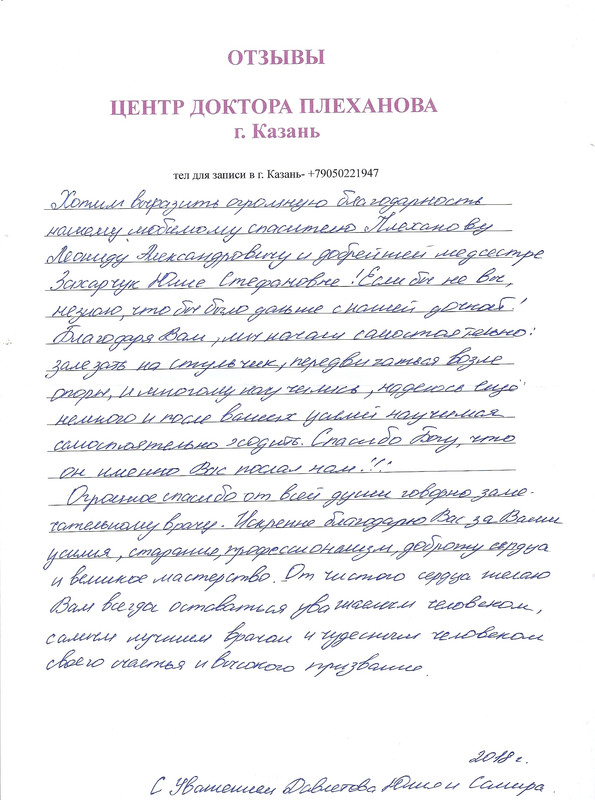 ОТЗЫВЫ
ЦЕНТР ДОКТОРА ПЛЕХАНОВА
г. Казань
тел для записи в г. Казань- +79050221947
Хотим выразить огромную благодарность
нашему любимому спасителю Плеханову
Леониду Александровичу и добрейшей медсестре
Захарчук Юлие Стефановне! Если бы не вы,
незнаю, что бы было дальше с нашей дочкой!
Благодаря Вам, мы начали самостоятельно:
залезать на стульчик, передвигаться возле
опоры, и многому научились, надеюсь ещё
немного и после ваших усилий научимся
самостоятельно ходить. Спасибо Богу, что
он именно Вас послал нам!!!
Огромное спасибо от всей души говорю заме-
чательному врачу. Искренне благодарю Вас за Ваши
усилия, старание, профессионализм, доброту сердца
и великое мастерство. От чистого сердца желаю
Вам всегда оставаться уважаемым человеком,
самым лучшим врачом и чудесным человеком
своего счастья и высокого призвание.
2018 г.
С Уважением Давлетова Юлия и Самира.